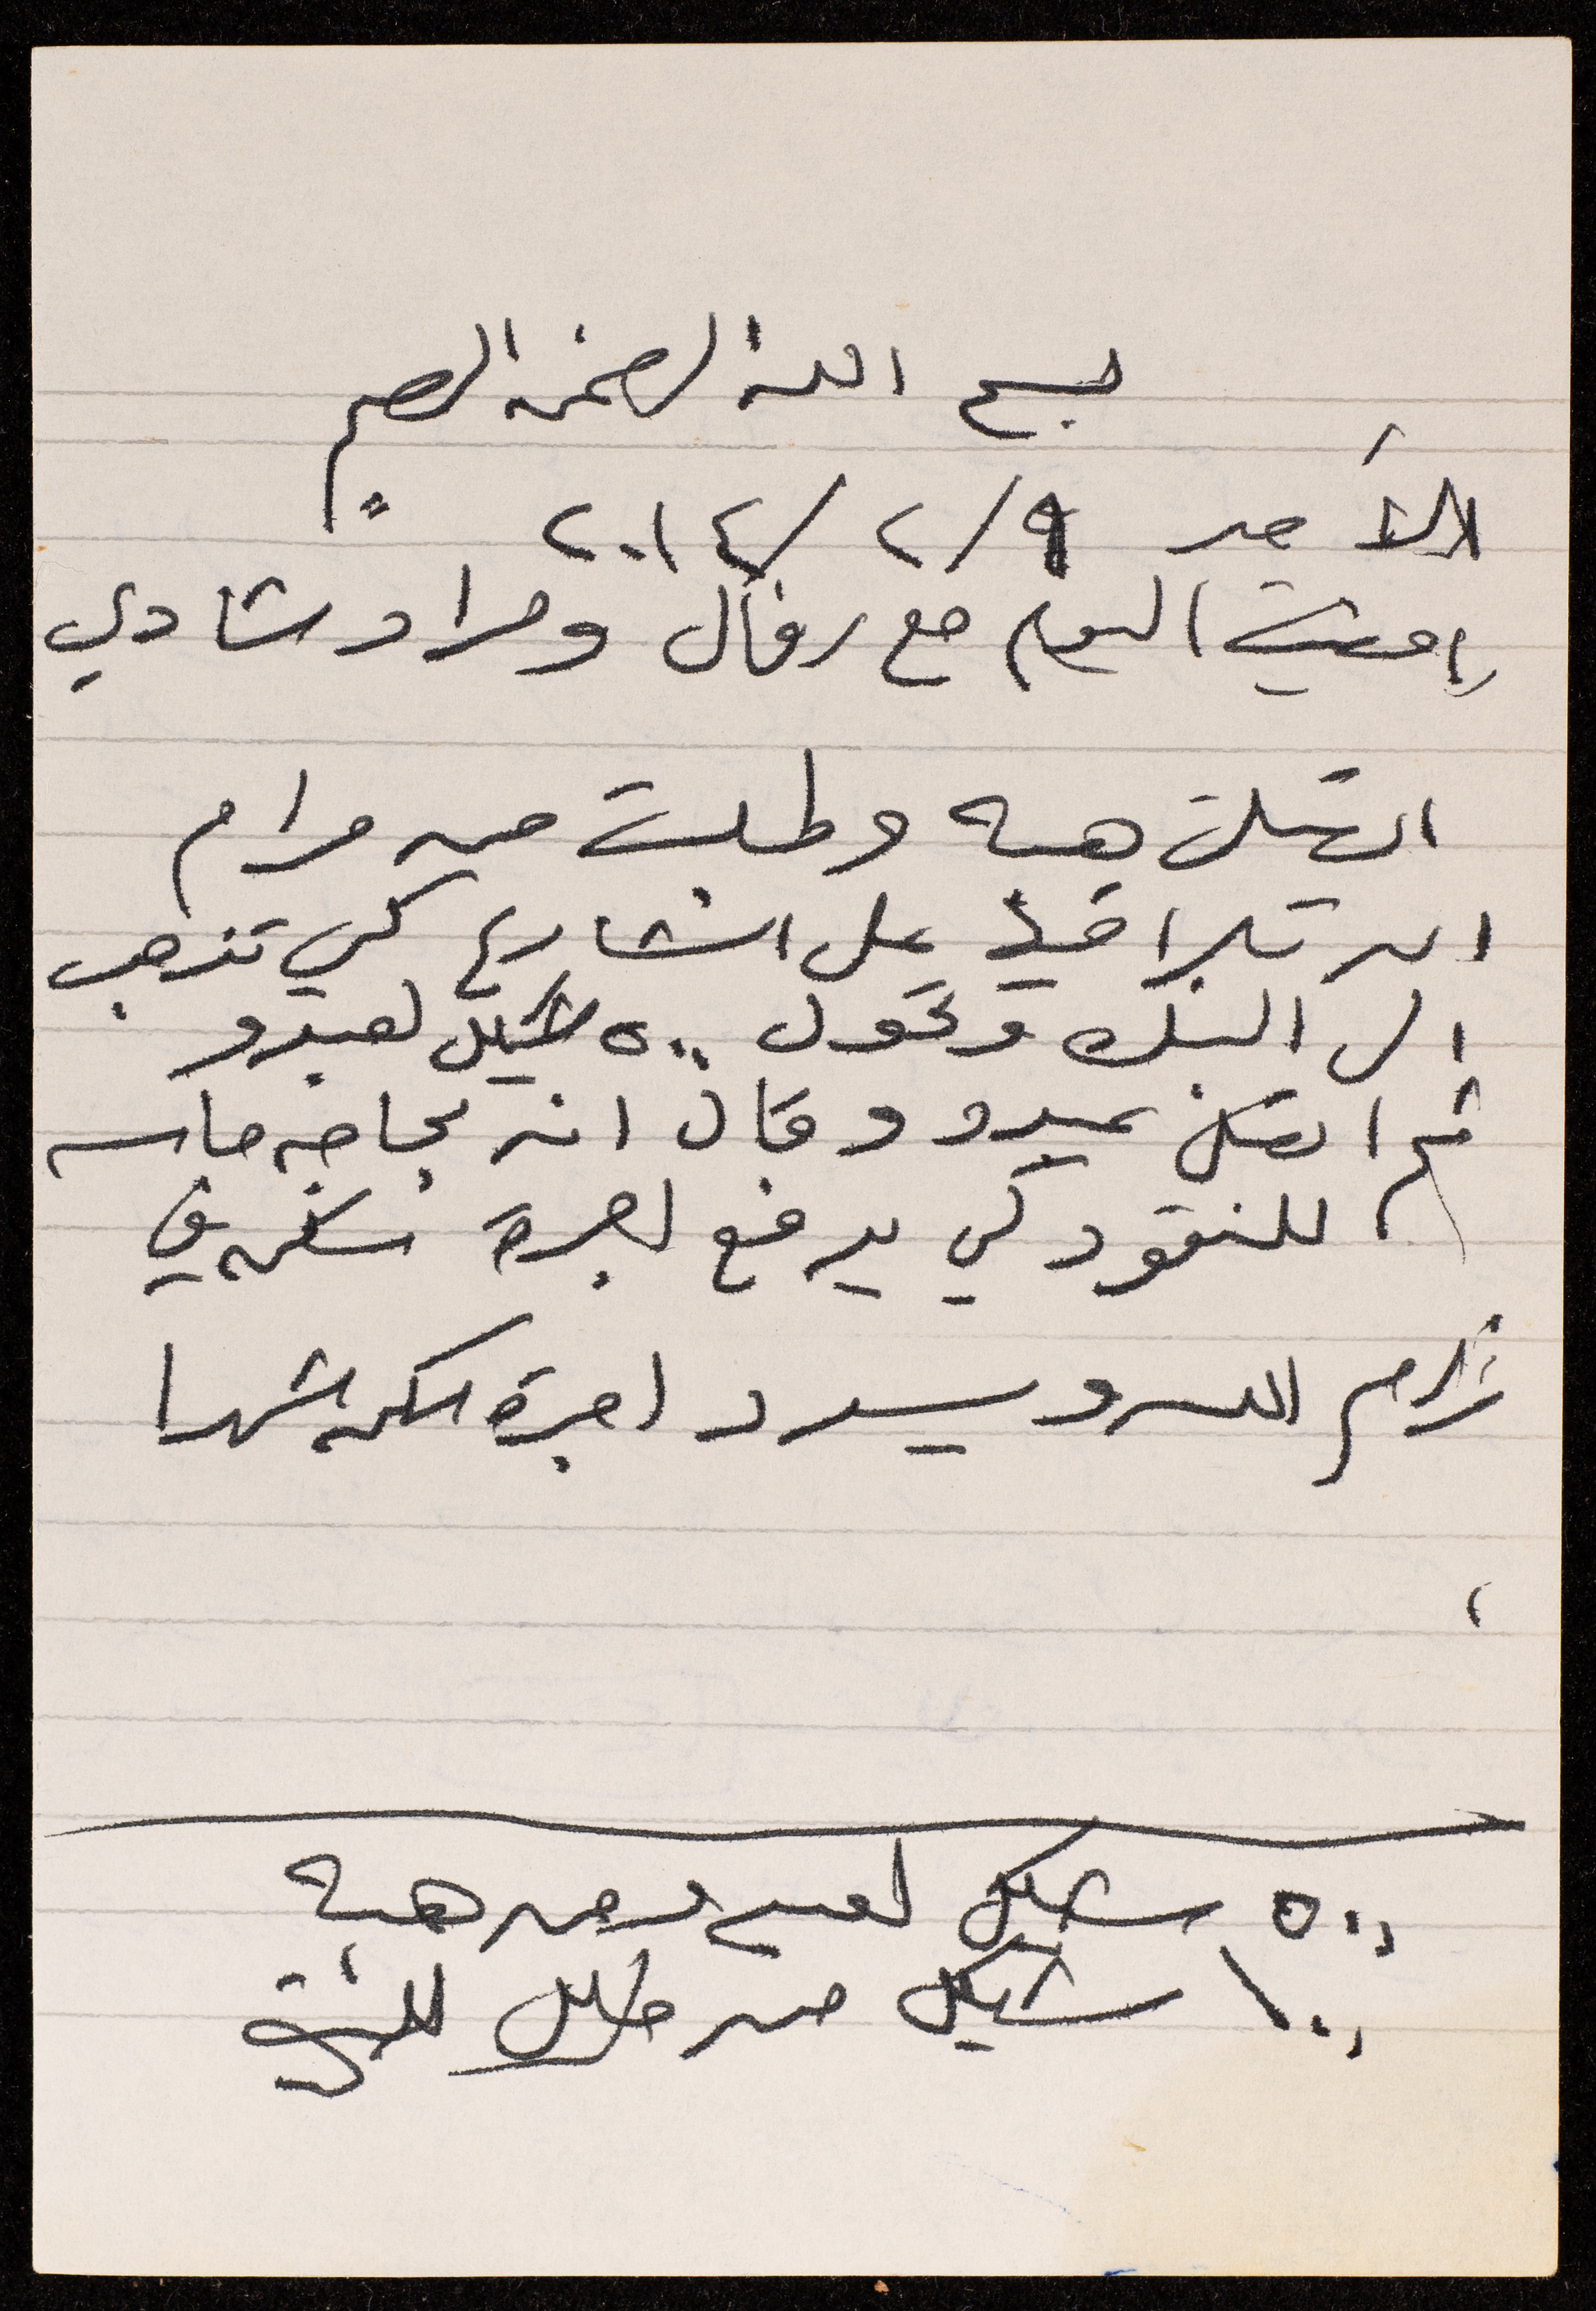 بسم الله الرحمن الرحيم
الأحد ٩/٢/٢٠١٤
امضيت اليوم مع رفال ومراد وشادي
اتصلت هبه وطلبت من مرام
ان تلاقيها على الشارع كي تذهب
الى البنك وتحول ٥٠٠ شيكل لعبدو
ثم اتصل عبدو وقال انه بحاجه ماسه
للنقود كي يدفع اجرة سكن في
وسيدد اجرة السكن شهرا
٥٠٠ شيكل لعبدو من هبه
١٠٠ شيكل من خليل